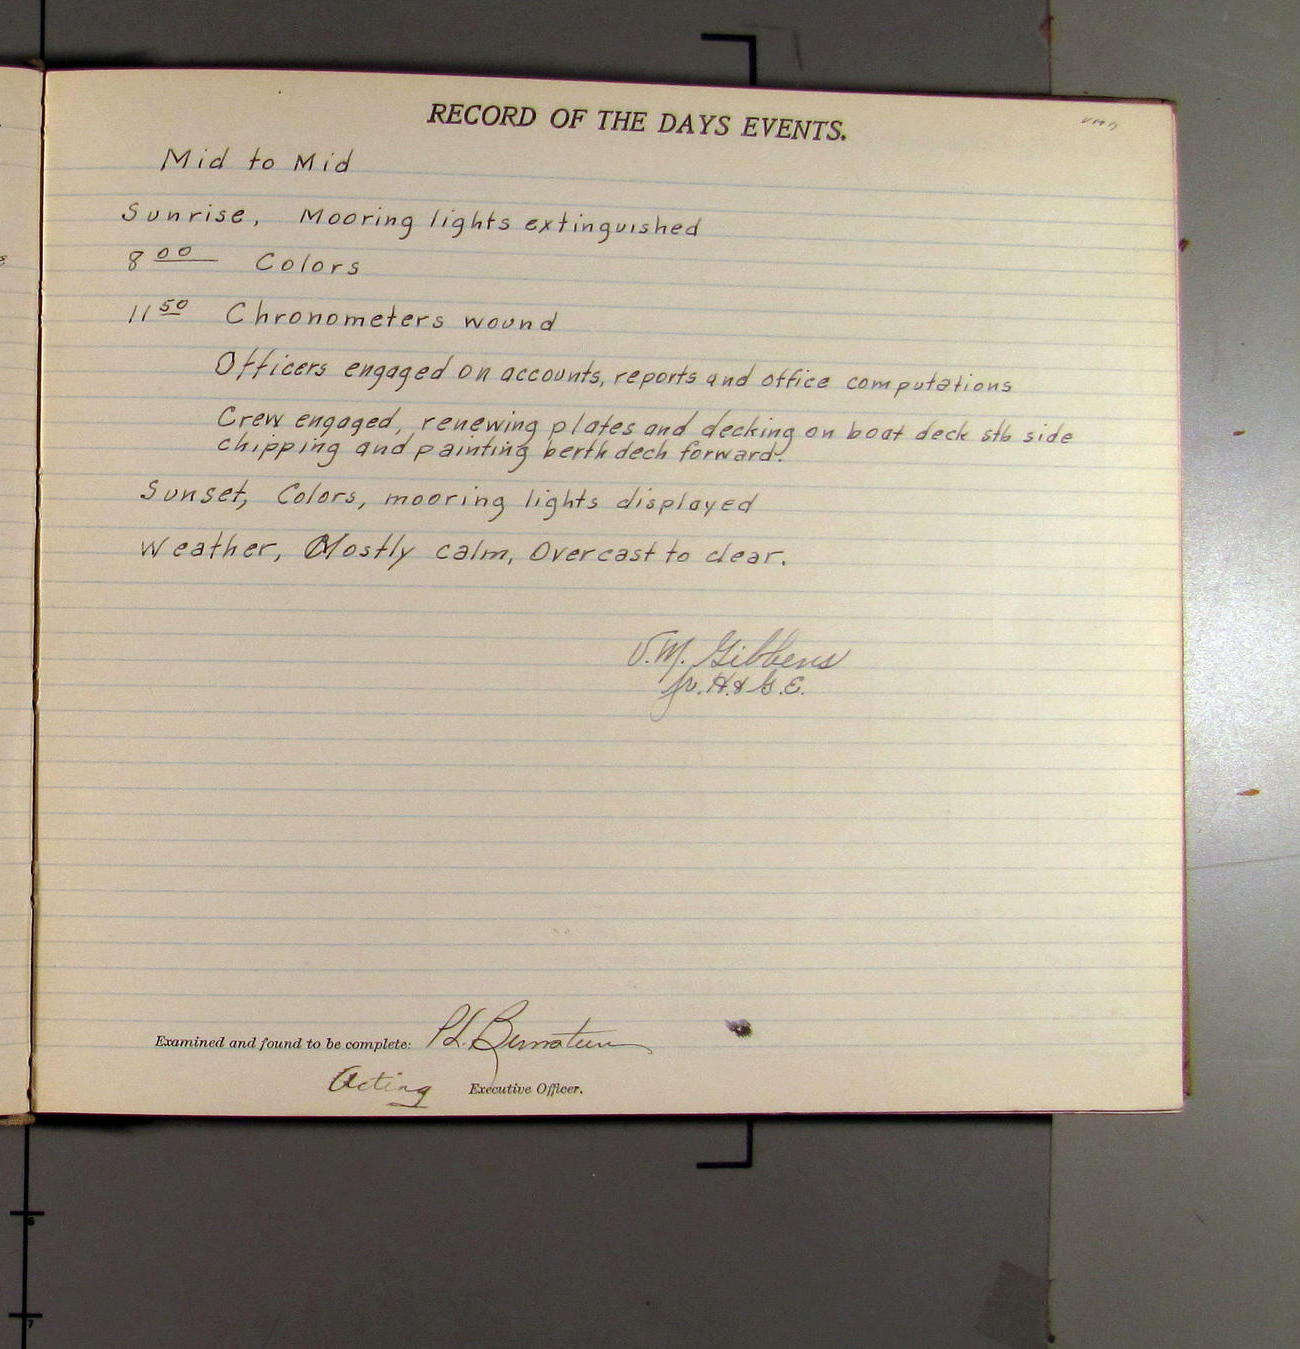 RECORD OF THE DAYS EVENTS.
Mid to Mid
Sunrise, Mooring lights extinguished
8 00 Colors
11 50 Chronometers wound
Officers engaged on accounts, reports and office computations
Crew engaged, renewing plates and decking on boat deck stb side
chipping and painting berth dech forward.
Sunset, Colors, mooring lights displayed
Weather, Mostly calm, Overcast to clear.
V.M. Gibbens
Jr. H. & G. E.
Examined and found to be complete: P.L. Bernstein
Acting Executive Officer.
6
7